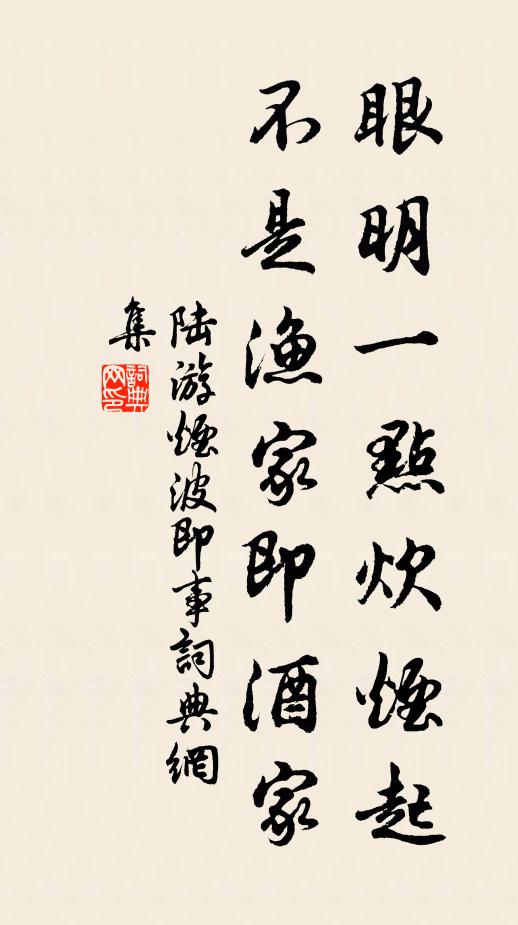 眼明一點炊煙起
不是漁家即酒家
陆游煙波即事詞典網
集
詞典
网印